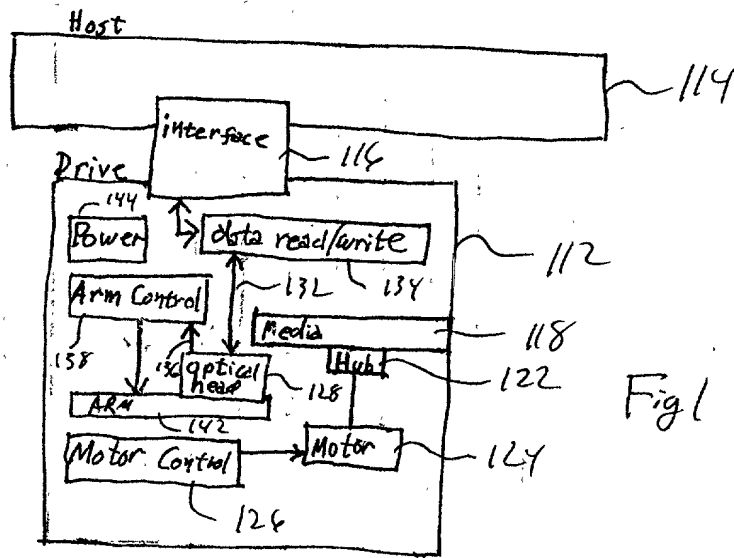 Host
114
interface
116
Drive
144
Power
data read/write
112
132
134
Arm Control
Media
118
138
136
optical head
128
Hub
122
ARM
142
Fig 1
Motor Control
Motor
124
126